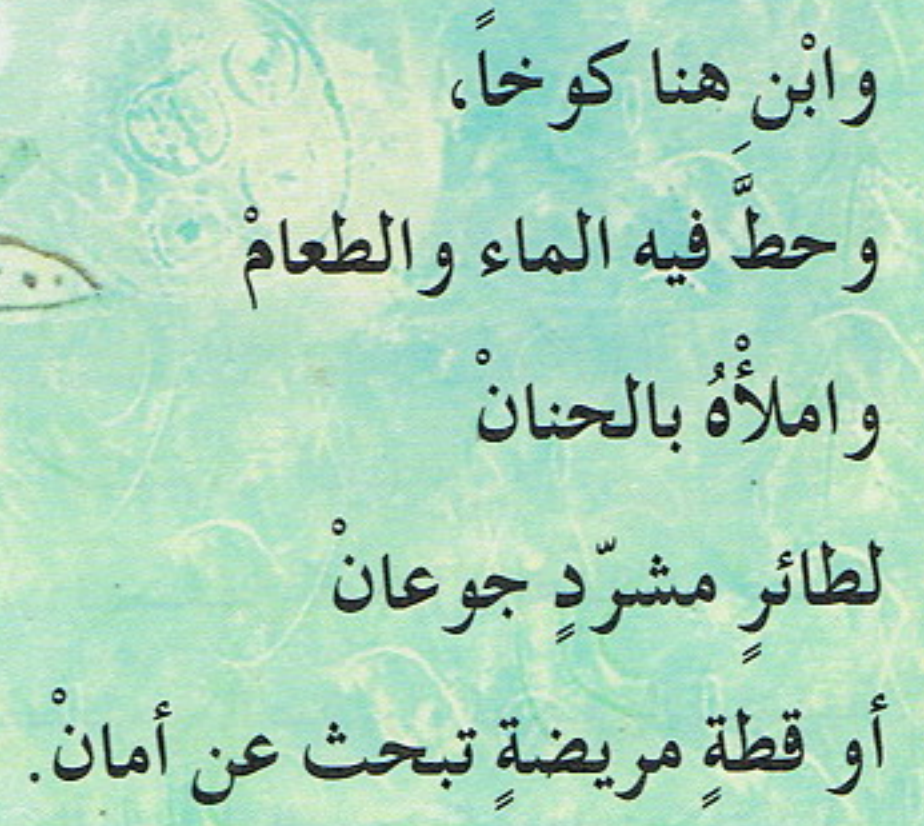 وابْنِ هنا كوخاً،
وحطَّ فيه الماء والطعامْ
واملأْهُ بالحنانْ
لطائرٍ مشرّدٍ جوعانْ
أو قطةٍ مريضةٍ تبحث عن أمانْ.